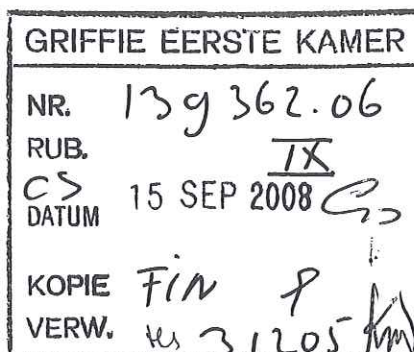 GRIFFIE EERSTE KAMER
NR. 139362.06
RUB. IX
CS
DATUM 15 SEP 2008
KOPIE FIN
VERW. 31205